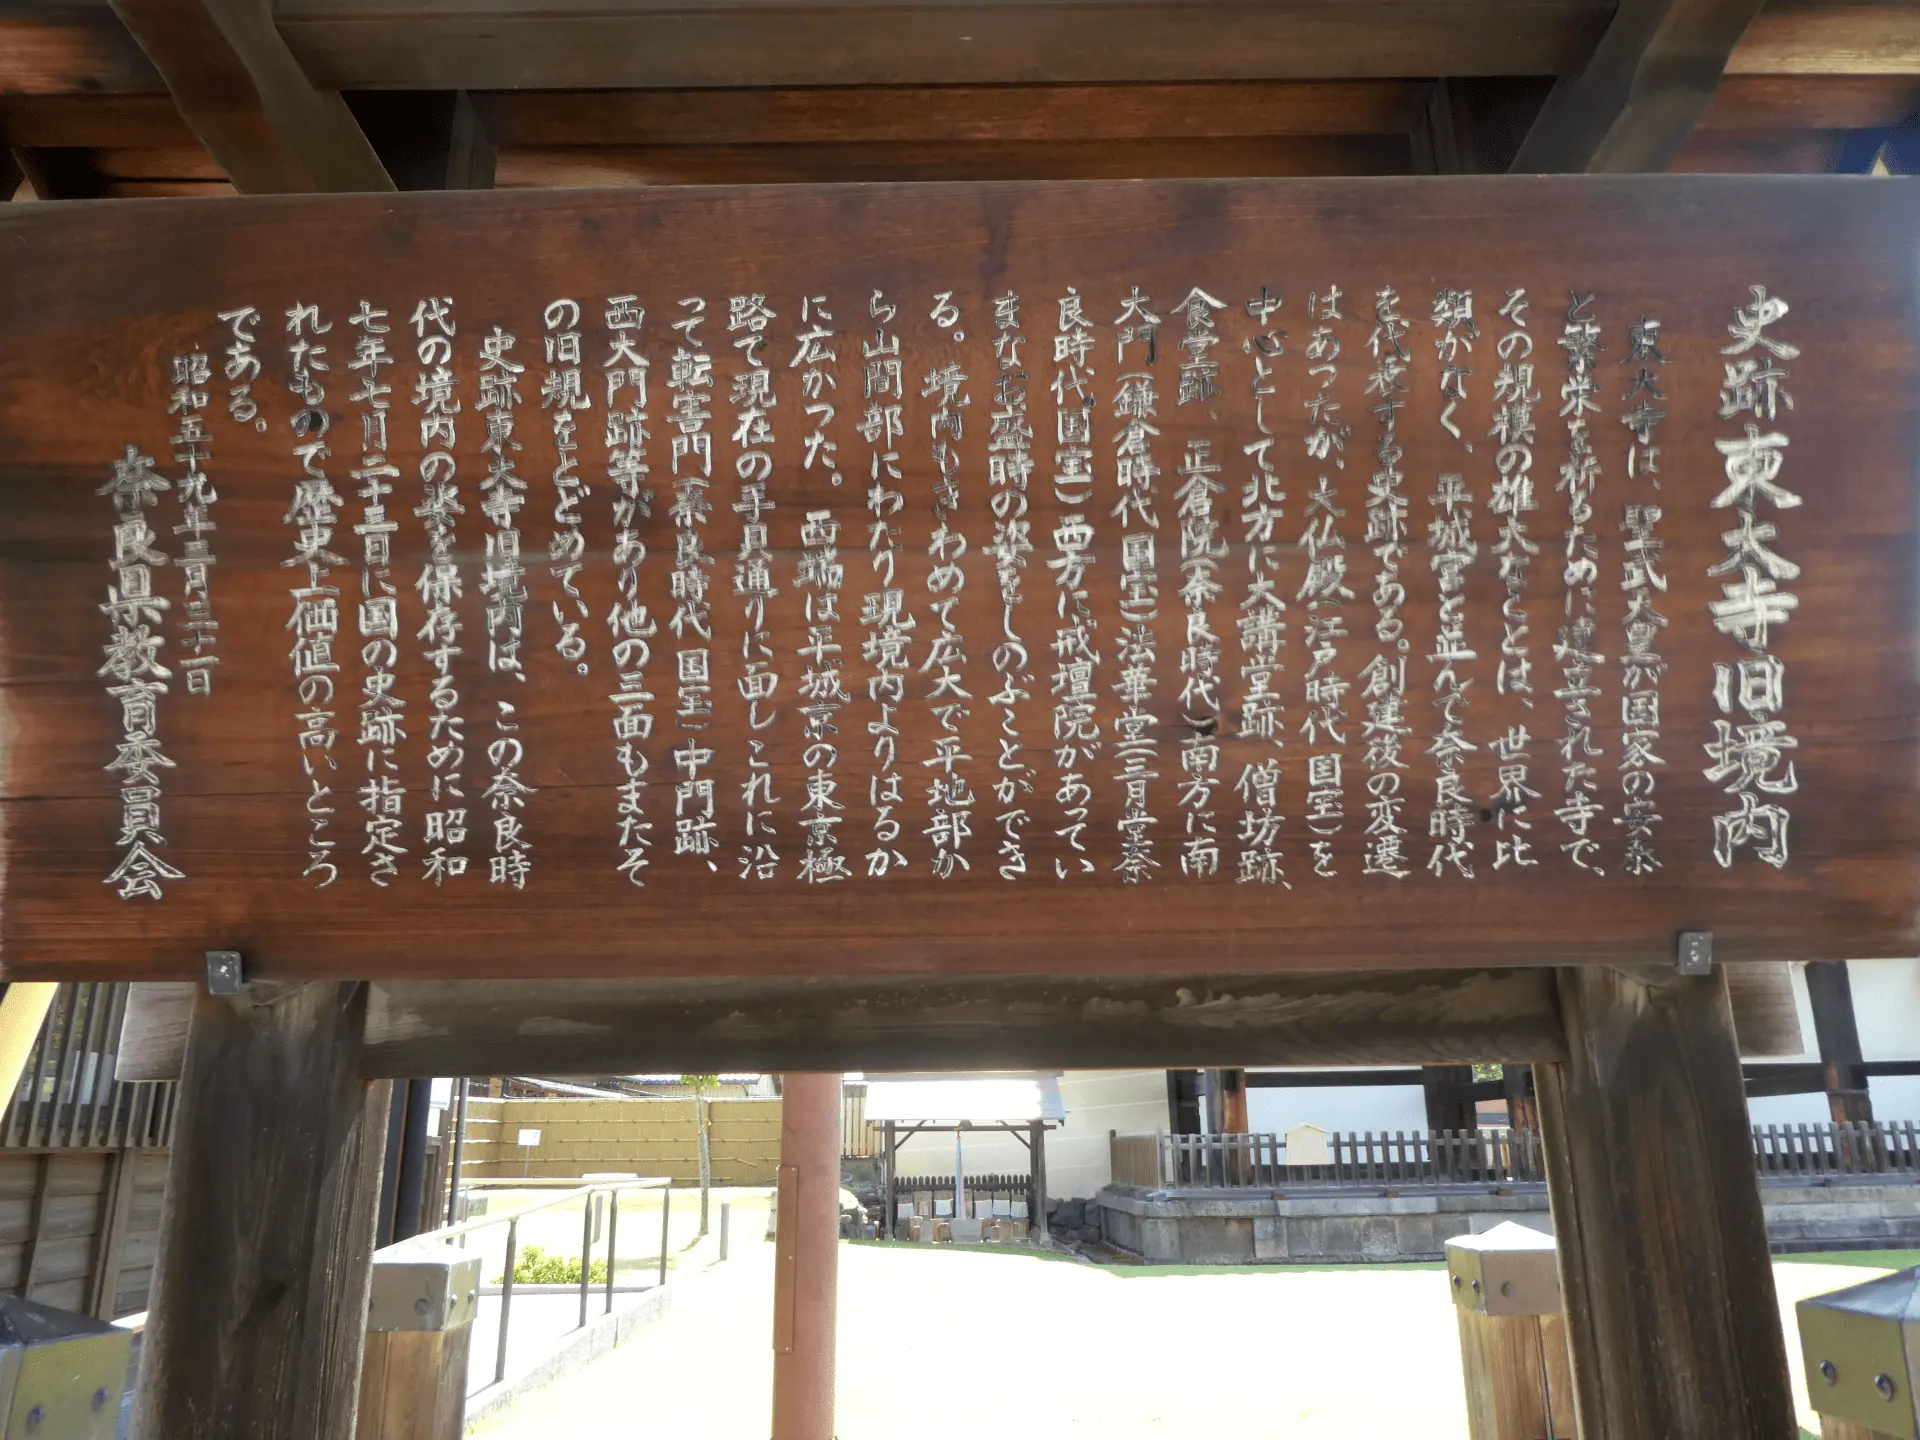 史跡東大寺旧境内
東大寺は、聖武天皇が国家の安泰
と繁栄を祈るために建立された寺で、
その規模の雄大なことは、世界に比
類がなく、平城宮と並んで奈良時代
を代表する史跡である。創建後の変遷
はあったが、大仏殿(江戸時代 国宝)を
中心として北方に大講堂跡、僧坊跡、
食堂跡、正倉院(奈良時代)南方に南
大門(鎌倉時代 国宝)法華堂(三月堂奈
良時代国宝)西方に戒壇院があってい
まなお盛時の姿をしのぶことができ
る。境内もきわめて広大で平地部か
ら山間部にわたり現境内よりはるか
に広かった。西端は平城京の東京極
路で現在の手貝通りに面しこれに沿
って転害門(奈良時代 国宝)中門跡、
西大門跡等があり他の三面もまたそ
の旧規をとどめている。
史跡東大寺旧境内は、この奈良時
代の境内の姿を保存するために昭和
七年七月二十三日に国の史跡に指定さ
れたもので歴史上価値の高いところ
である。
昭和五十九年三月三十一日
奈良県教育委員会